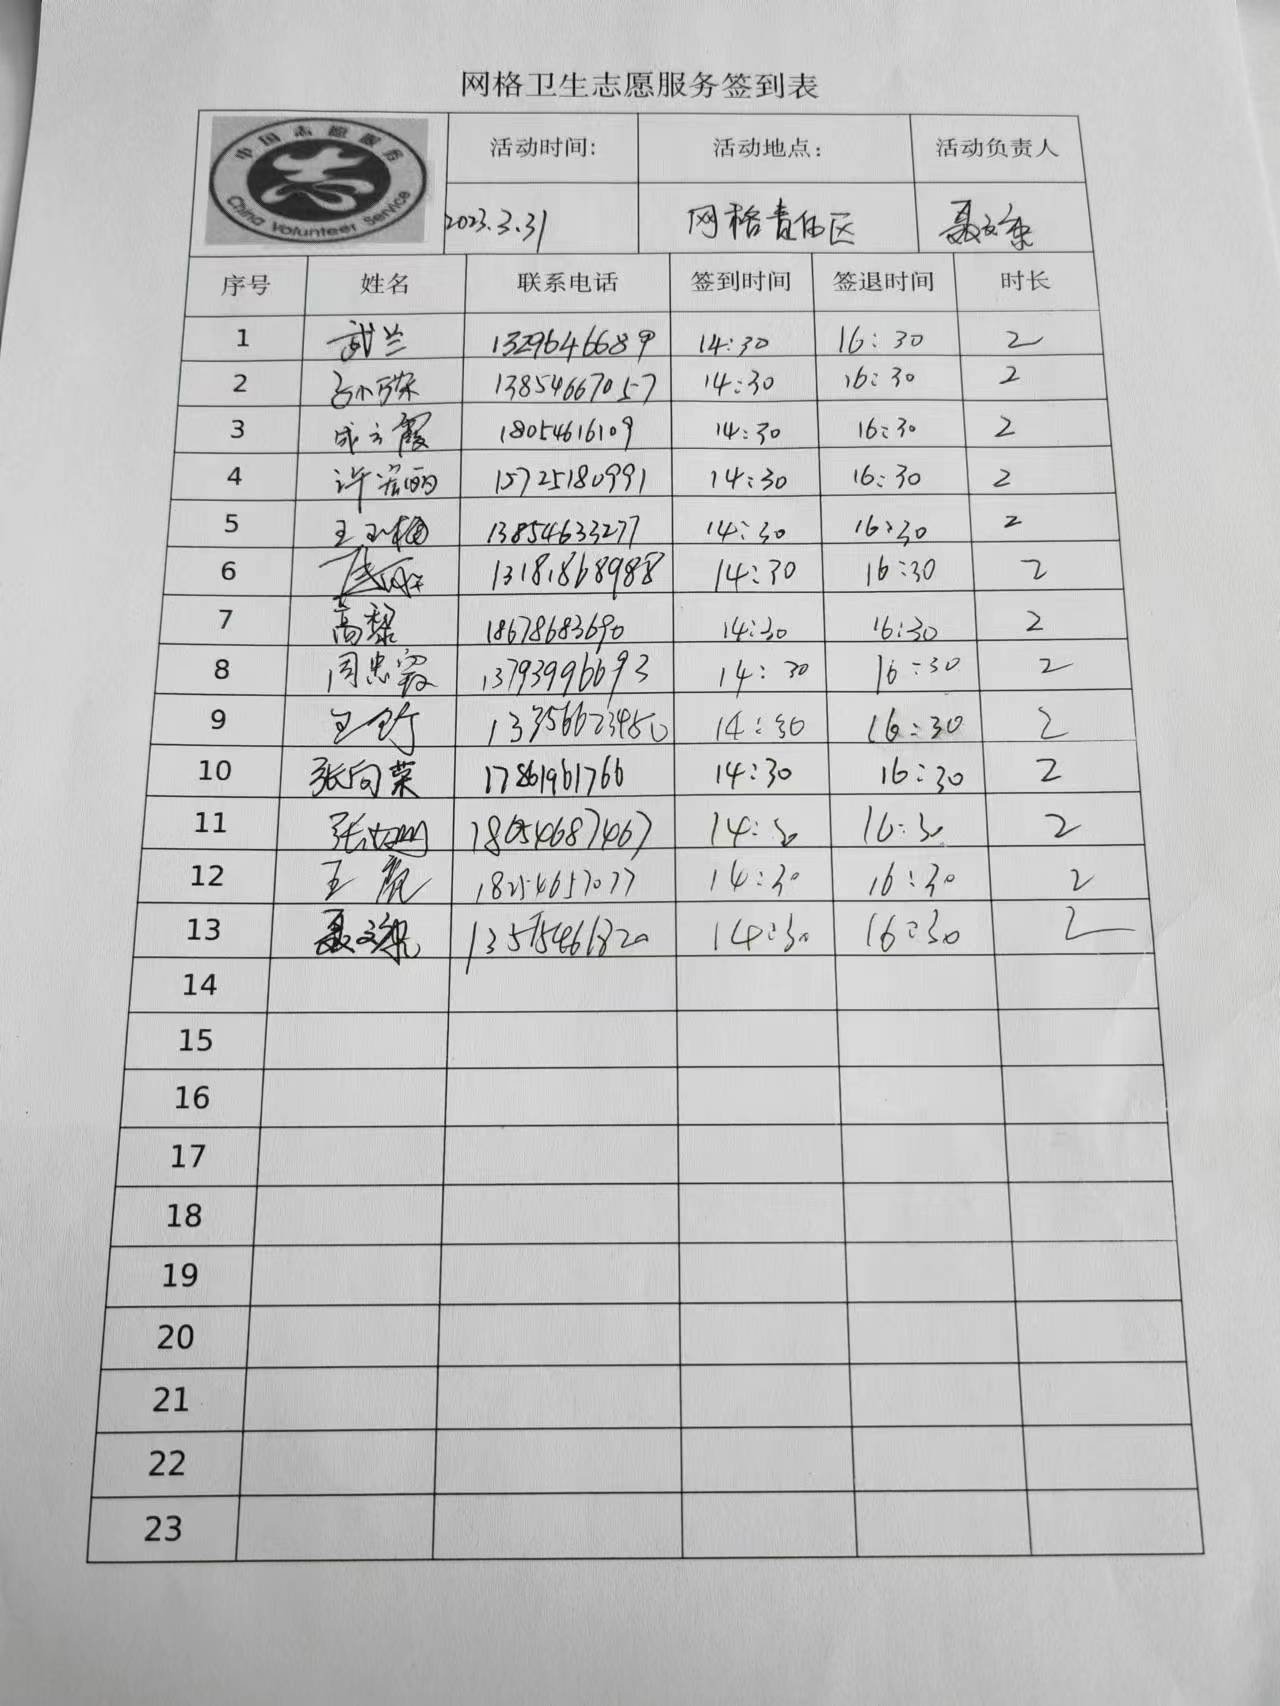 网格卫生志愿服务签到表
中国志愿服务
China Volunteer Service
活动时间: 活动地点: 活动负责人
2023.3.31 网格责任区
序号 姓名 联系电话 签到时间 签退时间 时长
1 武兰 13296466689 14:30 16:30 2
2 13854667057 14:30 16:30 2
3 18054616109 14:30 16:30 2
4 许宏丽 15725180991 14:30 16:30 2
5 王玉梅 13854633277 14:30 16:30 2
6 13181868988 14:30 16:30 2
7 高黎 18678683690 14:30 16:30 2
8 周忠霞 13793996693 14:30 16:30 2
9 王竹 14:30 16:30 2
10 张向荣 17861961766 14:30 16:30 2
11 18654687467 14:30 16:30 2
12 王 18254657077 14:30 16:30 2
13 14:30 16:30 2
14
15
16
17
18
19
20
21
22
23